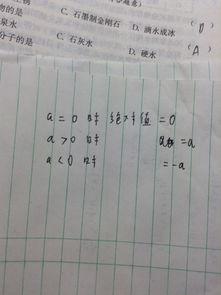 C. 石墨制金刚石 D. 滴水成冰 (D)
物的是 (A)
泉水 C. 石灰水 D. 硬水
分子的是
a = 0 时 绝对值 = 0
a > 0 时 = a
a < 0 时 = -a